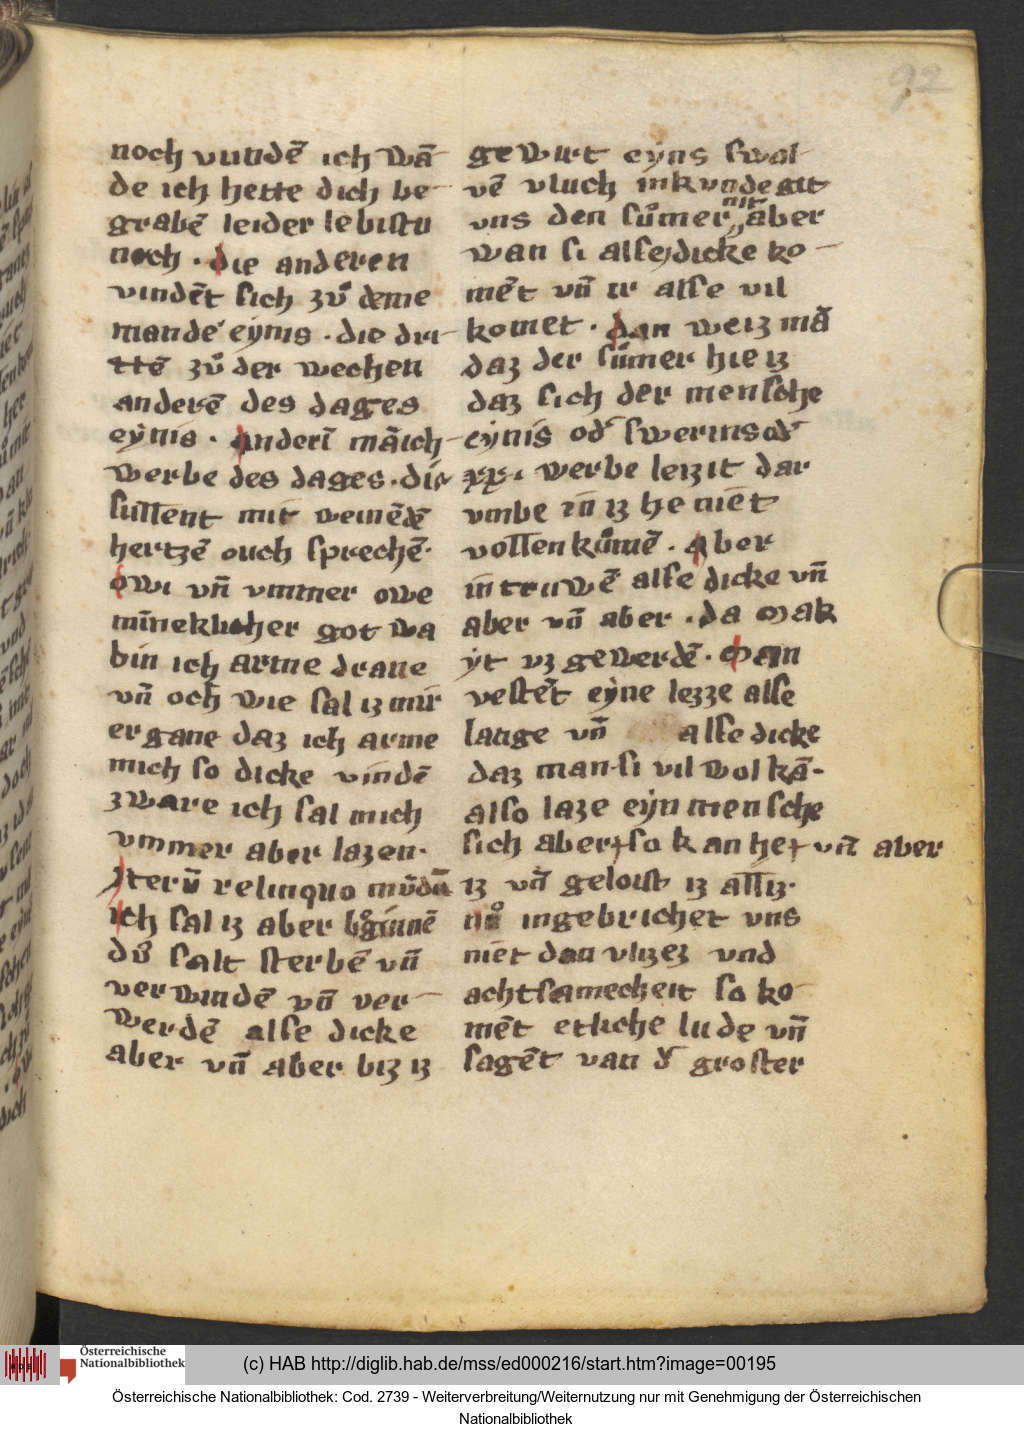 92
noch vundē ich wā-
de ich hette dich be-
grabē leider lebistu
noch · die anderen
vindēt sich zů deme
mande eynis · die dri-
ttē zů der wechen
anderē des dages
eynis · anderī māich-
werbe des dages · die
sullent mit weinēde
hertzē ouch sprechē·
owi vn̄ vmmer owe
mīneklicher got wa
bin ich arme draue
vn̄ och wie sal iz mir
ergane daz ich arme
mich so dicke vindē
zware ich sal mich
vmmer aber lazen·
Jterū relinquo mūdū
ich sal iz aber bogīnnē
dů salt sterbē vn̄
verwindē vn̄ ver-
werdē alse dicke
aber vn̄ aber biz iz
gewirt eyns swal-
vē vluch inkundegit
nit
vns den sůmer aber
wan si alse dicke ko-
mēt vn̄ ir alse vil
komet · dan weiz mā
daz der sůmer hie iz
daz sich der mensche
eynis od' swerins od'
xx. werbe leizit dar
vmbe in iz he niet
vollen kůmē · aber
in truwē alse dicke vn̄
aber vn̄ aber · da mak
yt uz gewerdē · Man
vestēt eyne lezze alse
lange vn̄ alse dicke
daz man si vil wol kā-
also laze eyn mensche
sich aber + so kan he + vn̄ aber
iz vn̄ geloist iz alliz·
nů ingebrichet vns
niet dan vlizez vnd
achtsamecheit so ko-
mēt etliche lude vn̄
sagēt van d' groster
Österreichische
Nationalbibliothek
(c) HAB http://diglib.hab.de/mss/ed000216/start.htm?image=00195
Österreichische Nationalbibliothek: Cod. 2739 - Weiterverbreitung/Weiternutzung nur mit Genehmigung der Österreichischen
Nationalbibliothek